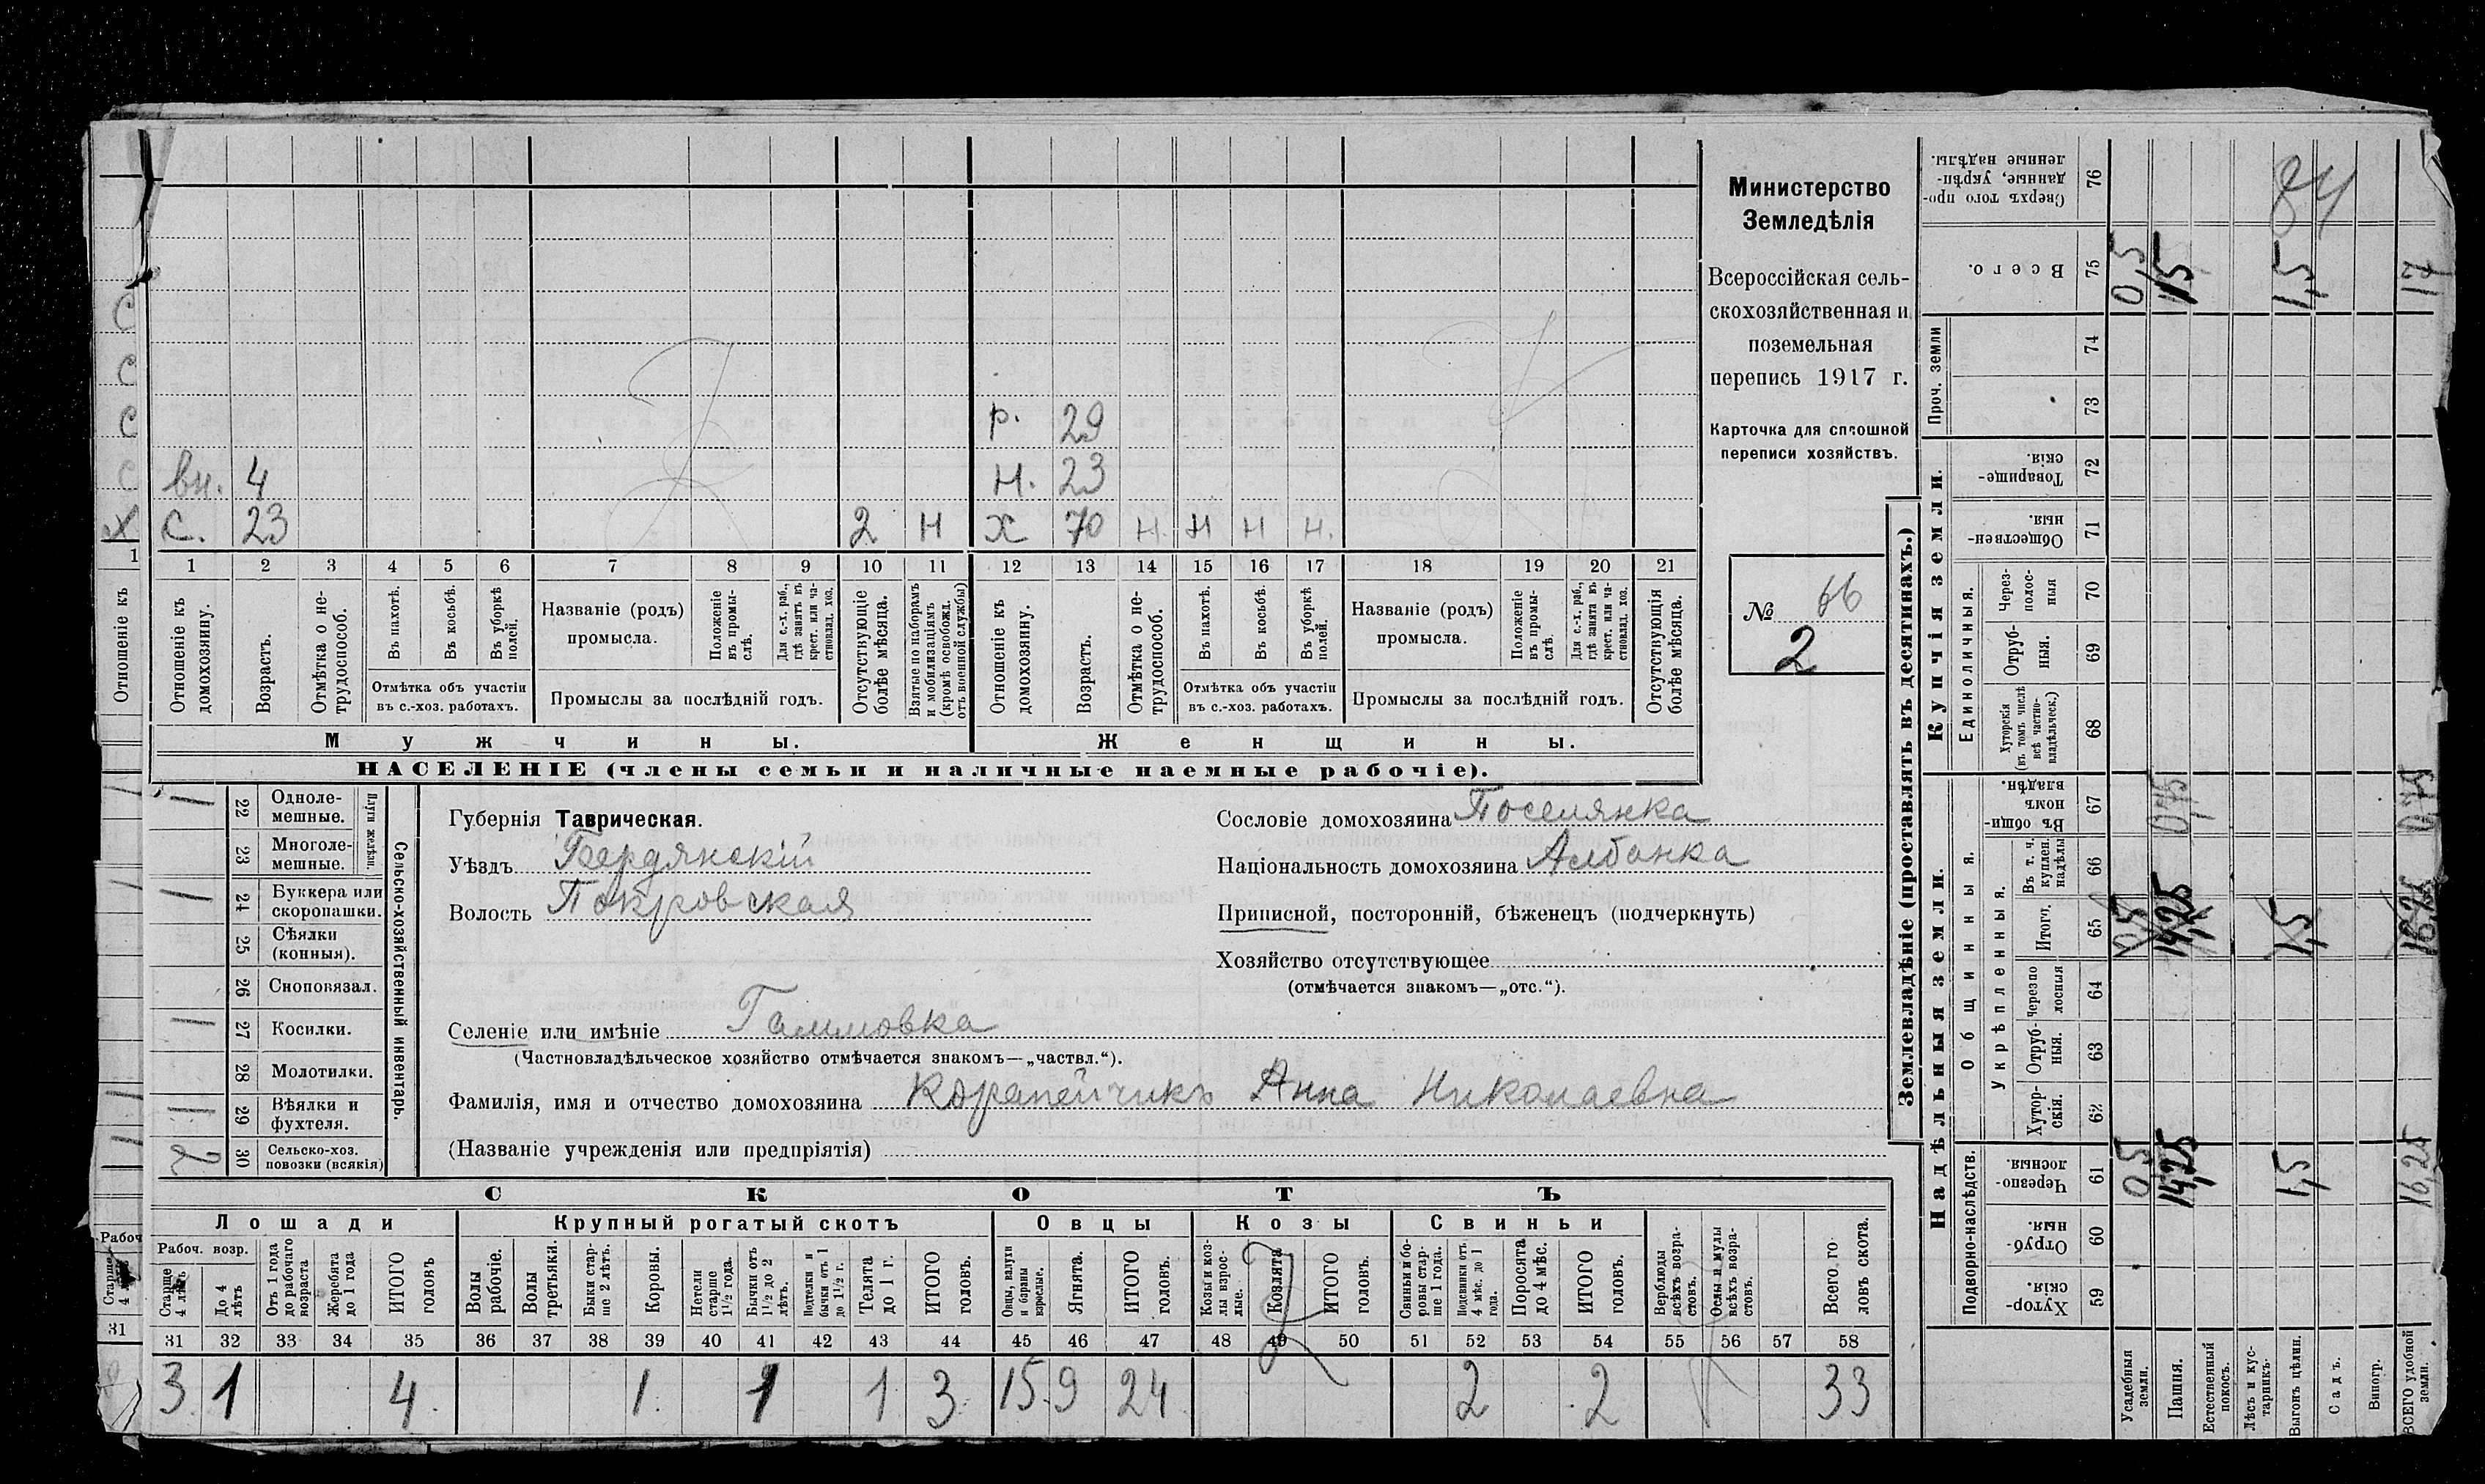 Министерство
Земледѣлія
Всероссійская сель-
скохозяйственная и
поземельная
перепись 1917 г.
Карточка для сплошной
переписи хозяйствъ.
№ 66
2
р. 29
вн. 4 н. 23
с. 23 2 н х 70 н н н н.
1 2 3 4 5 6 7 8 9 10 11 12 13 14 15 16 17 18 19 20 21
Отношеніе къ домохозяину.
Возрастъ.
Отмѣтка о не-трудоспособ.
Въ пахотѣ.
Въ косьбѣ.
Въ уборкѣ полей.
Отмѣтка объ участіи
въ с.-хоз. работахъ.
Названіе (родъ)
промысла.
Положеніе въ промы-слѣ.
Для с.-х. раб., гдѣ занятъ въ крест. или ча-стновлад. хоз.
Промыслы за послѣдній годъ.
Отсутствующіе болѣе мѣсяца.
Взятые по наборамъ и мобилизаціямъ (кромѣ освобожд. отъ военной службы)
Отношеніе къ домохозяину.
Возрастъ.
Отмѣтка о не-трудоспособ.
Въ пахотѣ.
Въ косьбѣ.
Въ уборкѣ полей.
Отмѣтка объ участіи
въ с.-хоз. работахъ.
Названіе (родъ)
промысла.
Положеніе въ промы-слѣ.
Для с.-х. раб., гдѣ занята въ крест. или ча-стновлад. хоз.
Промыслы за послѣдній годъ.
Отсутствующія болѣе мѣсяца.
Мужчины. Женщины.
НАСЕЛЕНІЕ (члены семьи и наличные наемные рабочіе).
Сельско-хозяйственный инвентарь.
Плуги желѣзн.
1 22 Однолемешные.
23 Многолемешные.
1 24 Буккера или скоропашки.
25 Сѣялки (конныя).
26 Сноповязал.
1 27 Косилки.
28 Молотилки.
1 29 Вѣялки и фухтеля.
2 30 Сельско-хоз. повозки (всякія)
Губернія Таврическая.
Уѣздъ Бердянскій
Волость Покровская
Сословіе домохозяина Поселянка
Національность домохозяина Албанка
Приписной, посторонній, бѣженецъ (подчеркнуть)
Хозяйство отсутствующее
(отмѣчается знакомъ—„отс.“).
Селеніе или имѣніе Гаммовка
(Частновладѣльческое хозяйство отмѣчается знакомъ—„частвл.“).
Фамилія, имя и отчество домохозяина Анна Николаевна
(Названіе учрежденія или предпріятія)
СКОТЪ
Лошади Крупный рогатый скотъ Овцы Козы Свиньи
Рабоч. возр.
Старше 4 лѣтъ
До 4 лѣтъ
Отъ 1 года до рабочаго возраста
Жеребята до 1 года
ИТОГО головъ
Волы рабочіе.
Волы третьяки.
Быки стар-ше 2 лѣтъ.
Коровы.
Нетели старше 1½ года.
Бычки отъ 1½ до 2 лѣтъ.
Подтелки и бычки отъ 1 до 1½ г.
Телята до 1 г.
ИТОГО головъ.
Овцы, валухи и бараны взрослые.
Ягнята.
ИТОГО головъ.
Козы и коз-лы взрос-лые.
Козлята
ИТОГО головъ.
Свиньи и бо-ровы стар-ше 1 года.
Подсвинки отъ 4 мѣс. до 1 года.
Поросята до 4 мѣс.
ИТОГО головъ.
Верблюды всѣхъ возра-стовъ.
Ослы и мулы всѣхъ возра-стовъ.
Всего го-ловъ скота.
31 32 33 34 35 36 37 38 39 40 41 42 43 44 45 46 47 48 49 50 51 52 53 54 55 56 57 58
3 1 4 1 1 1 3 15 9 24 2 2 33
Землевладѣніе (проставлять въ десятинахъ.)
Надѣльныя земли. Купчія земли. Проч. земли
Подворно-наслѣдств.
Общинныя.
Укрѣпленныя.
Единоличныя.
Хутор-скія 59
Отруб-ныя. 60
Черезпо-лосныя. 61
Хутор-скія. 62
Отруб-ныя. 63
Черезпо-лосныя 64
Итого. 65
Въ т. ч. куплен. надѣлы 66
Въ общи-номъ владѣн. 67
Хуторскія (въ томъ числѣ всѣ частно-владѣльческ.) 68
Отруб-ныя. 69
Через-полос-ныя 70
Обществен-ныя. 71
Товарище-скія. 72
73
74
Всего. 75
Сверхъ того про-данные, укрѣп-ленные надѣлы. 76
Усадебныя земли. 0,5 0,5 0,5
Пашня. 14,25 14,25 0,75 15
Естественный покосъ.
Лѣсъ и кус-тарникъ.
Выгонъ цѣлин. 1,5 1,5 1,5 84
Садъ.
Виногр.
ВСЕГО удобной земли. 16,25 16,25 0,75 17
С
С
С
С
Х
1
Отношеніе къ
Рабоч
Старше 4 лѣтъ
31